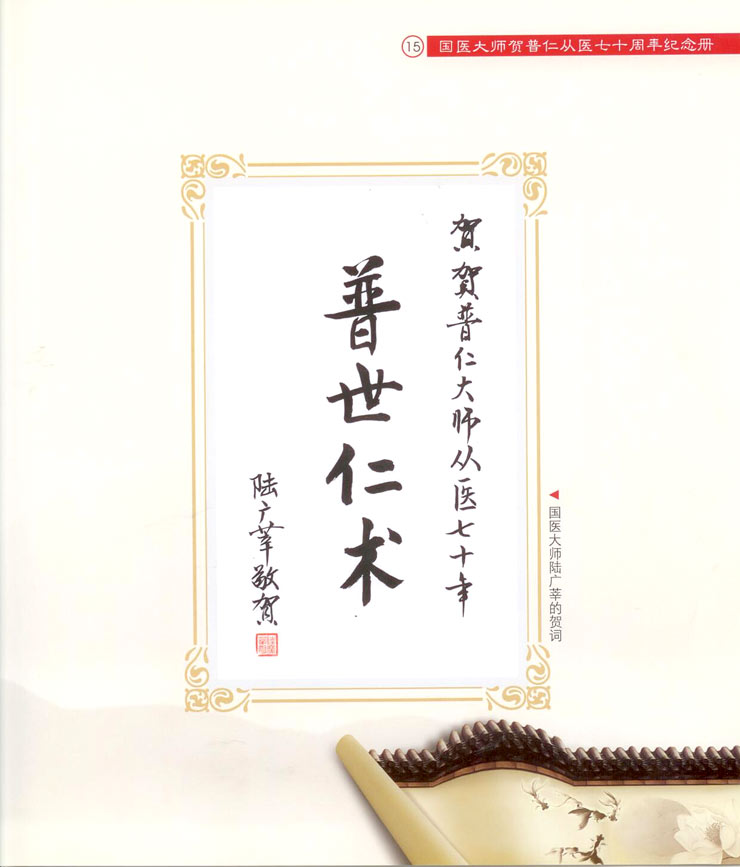 15
国医大师贺普仁从医七十周年纪念册
贺贺普仁大师从医七十年
普世仁术
陆广莘敬贺
国医大师陆广莘的贺词